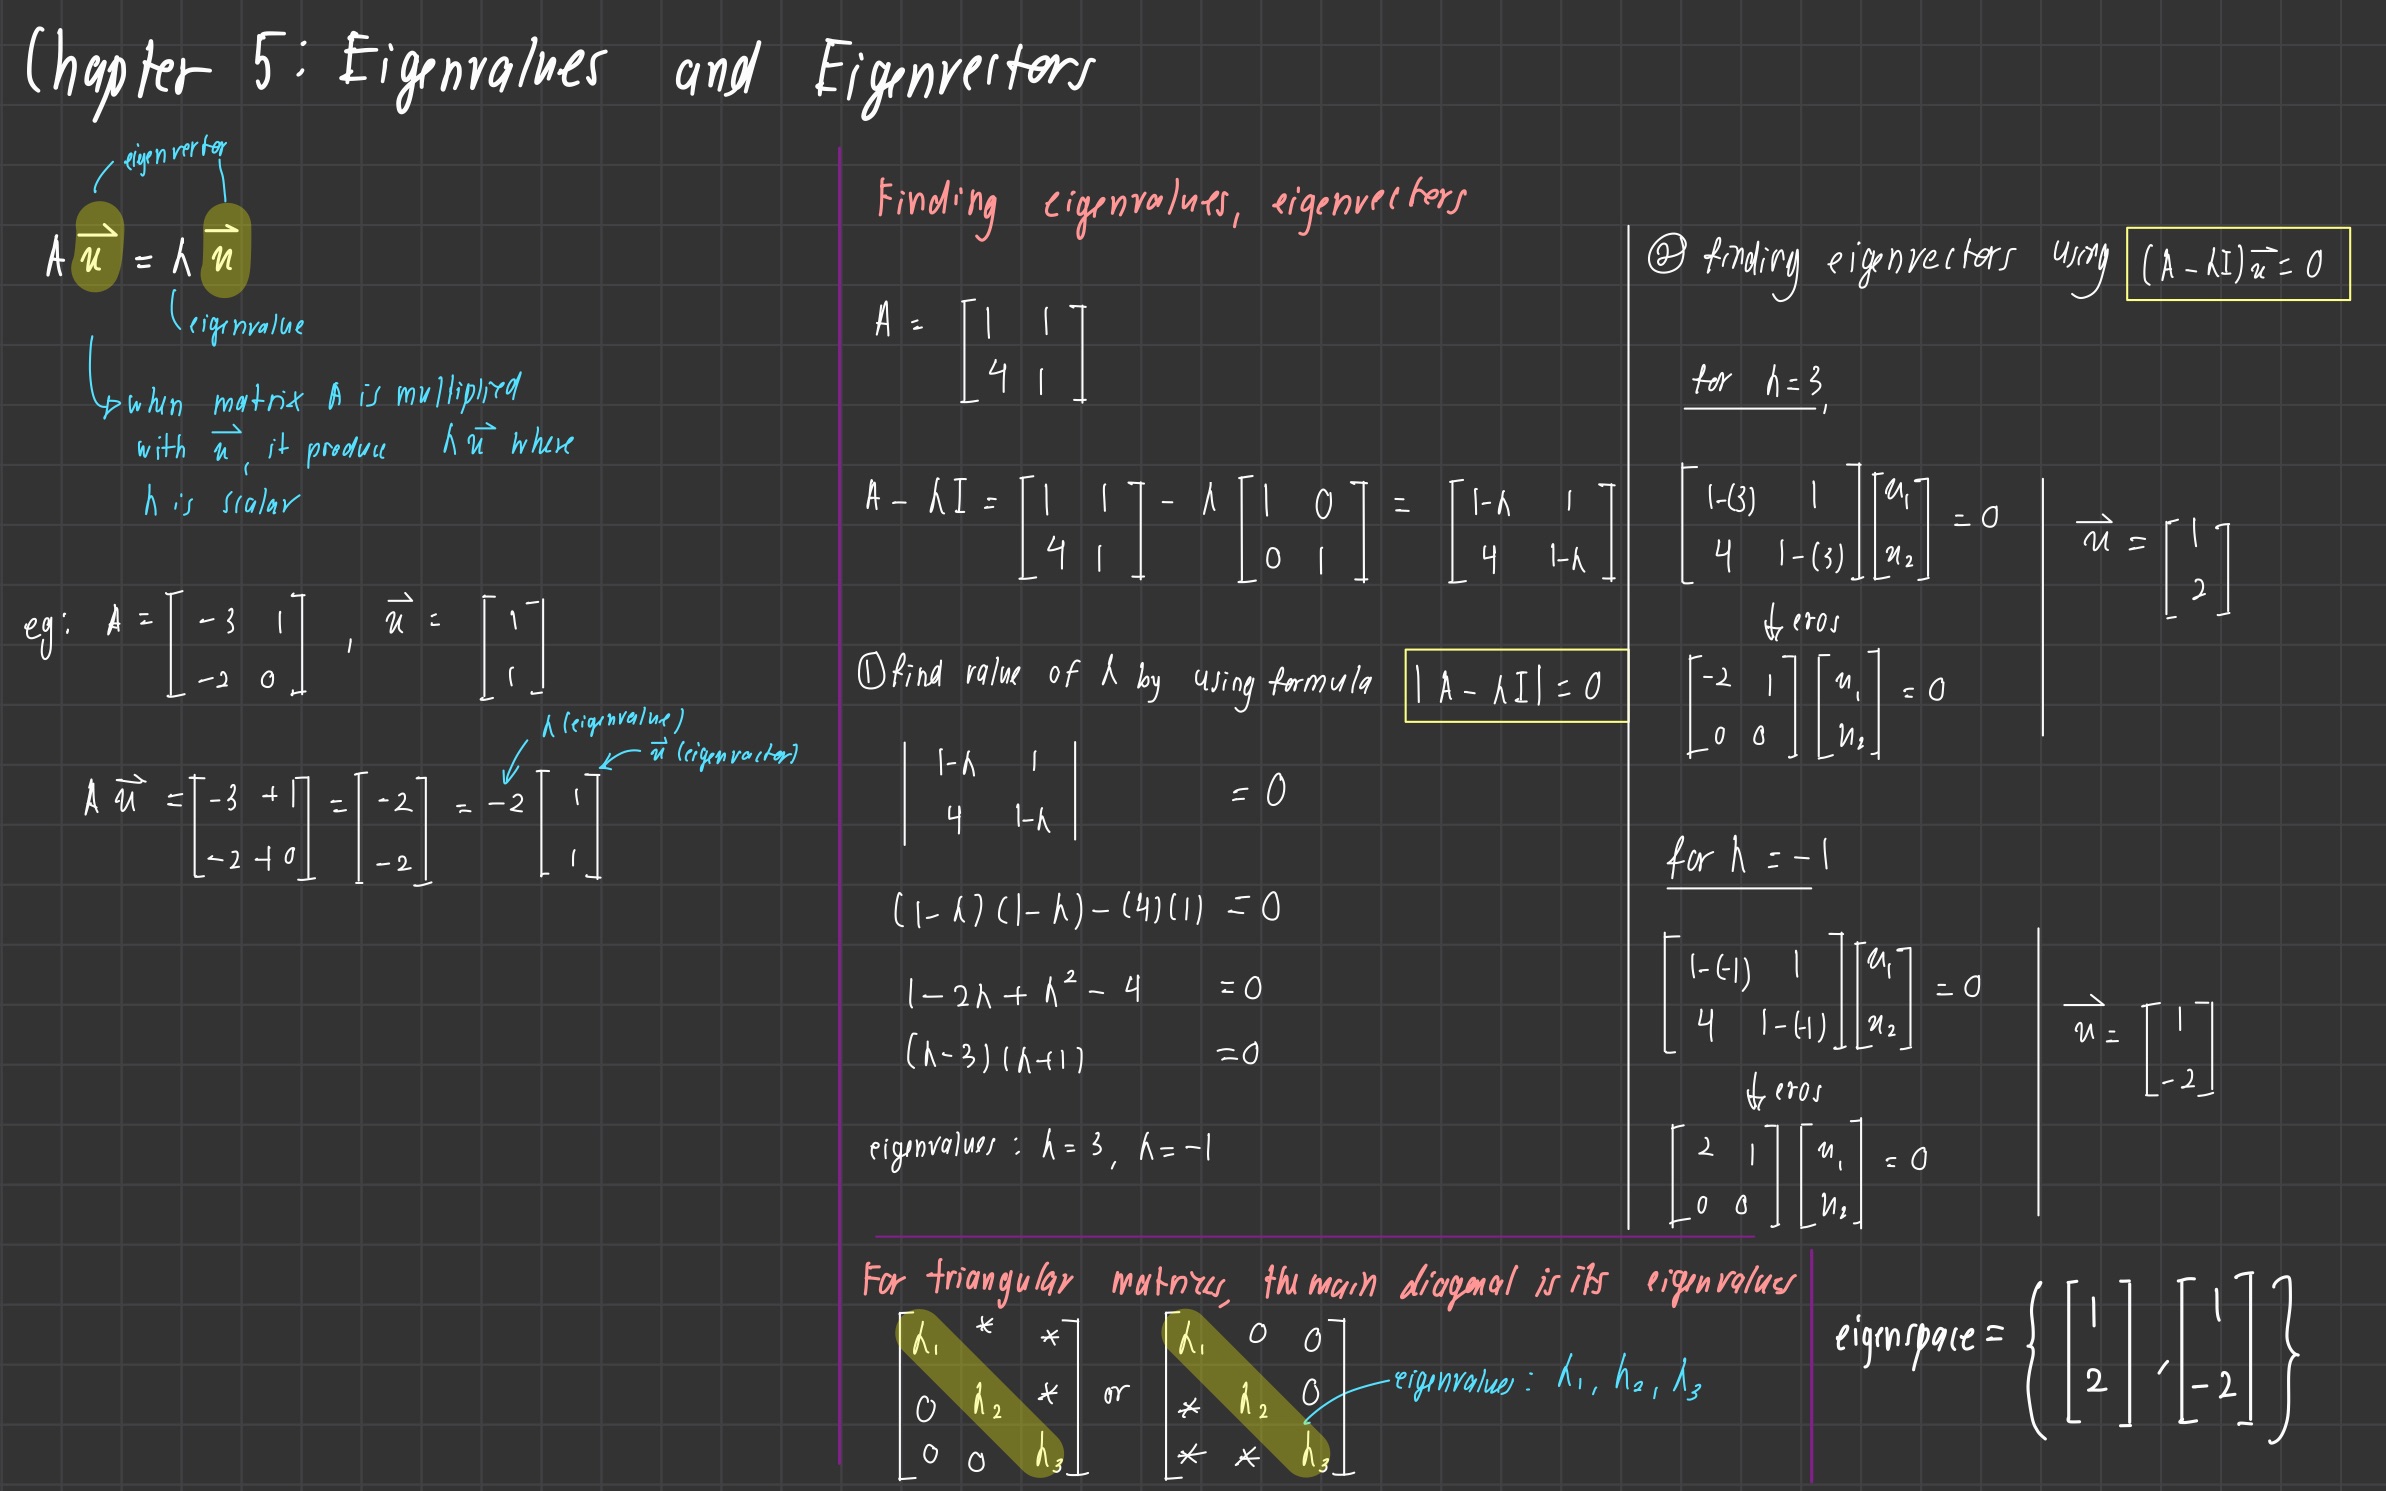 Chapter 5: Eigenvalues and Eigenvectors
eigenvector
A u⃗ = λ u⃗
eigenvalue
when matrix A is multiplied
with u⃗, it produce λu⃗ where
λ is scalar
eg: A = [-3 1; -2 0], u⃗ = [1; 1]
λ (eigenvalue)
u⃗ (eigenvector)
A u⃗ = [-3 +1; -2 +0] = [-2; -2] = -2 [1; 1]
Finding eigenvalues, eigenvectors
A = [1 1; 4 1]
A - λI = [1 1; 4 1] - λ [1 0; 0 1] = [1-λ 1; 4 1-λ]
① find value of λ by using formula |A - λI| = 0
|1-λ 1; 4 1-λ| = 0
(1-λ)(1-λ) - (4)(1) = 0
1 - 2λ + λ² - 4 = 0
(λ-3)(λ+1) = 0
eigenvalues: λ = 3, λ = -1
② finding eigenvectors using (A - λI)u⃗ = 0
for λ = 3,
[1-(3) 1; 4 1-(3)] [u₁; u₂] = 0
↓ eros
[-2 1; 0 0] [u₁; u₂] = 0
u⃗ = [1; 2]
for λ = -1
[1-(-1) 1; 4 1-(-1)] [u₁; u₂] = 0
↓ eros
[2 1; 0 0] [u₁; u₂] = 0
u⃗ = [1; -2]
For triangular matrices, the main diagonal is its eigenvalues
[λ₁ * *; 0 λ₂ *; 0 0 λ₃] or [λ₁ 0 0; * λ₂ 0; * * λ₃]
eigenvalues: λ₁, λ₂, λ₃
eigenspace = {[1; 2], [1; -2]}